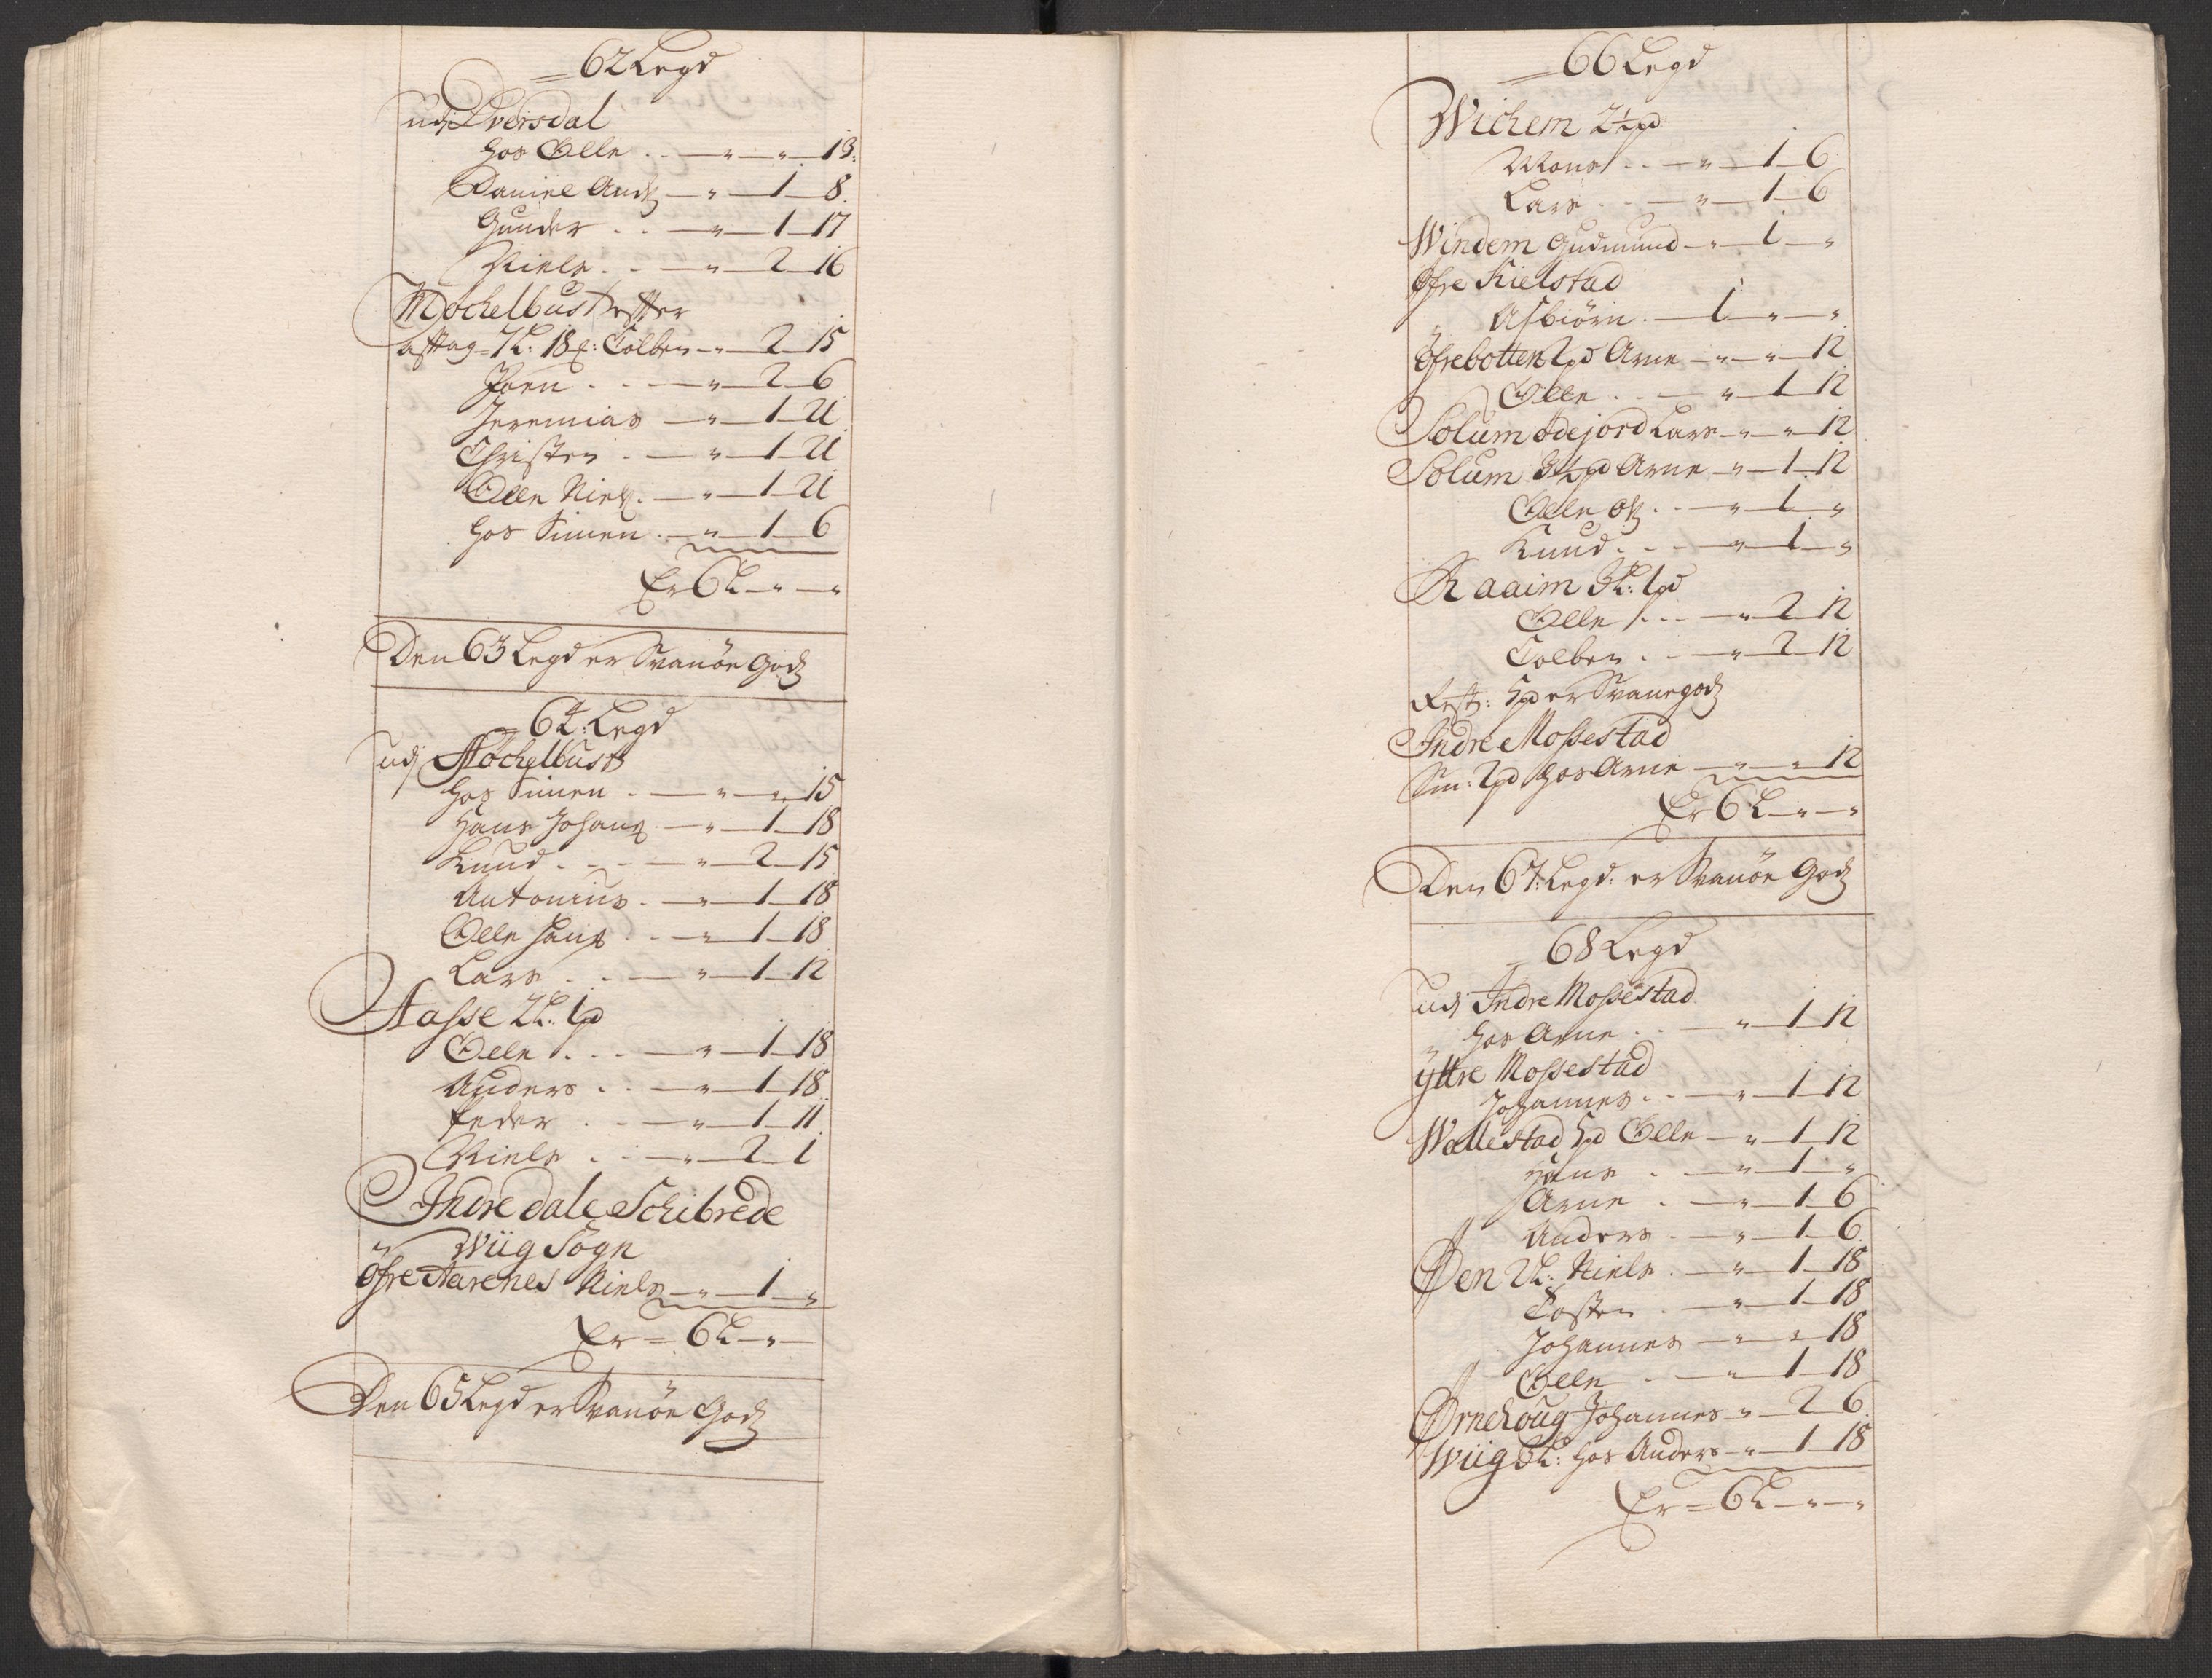 62 Legd
udj Lversdal
hos Olle . . — „ — „ — 13:
Daniel And — „ — 1 — 8.
Gunder . . — „ — 1 — 17
Niels . . — „ — 2 — 16
Mochelbust efter
afttag 1 L: 18 : Tolben — „ 2 — 15
Joen . . — „ — 2 — 6
Jeremias — „ — 1 — 21
Christen . — „ — 1 — 21
Olle Niels . — „ — 1 — 21
hos Simen . — „ — 1 — 6
Er 6 L — „ — „
Den 63 Legd er Svanöe Gods
64: Legd
udj Høchelbust
hos Simen . — „ — „ — 15
Hans Johans . — „ — 1 — 18
Knud . . — „ — 2 — 15
Antonius . — „ — 1 — 18
Olle Hans . . — „ — 1 — 18
Lars . . — „ — 1 — 12
Aasse 2 L: 1 pd
Olle . . . — „ — 1 — 18
Anders . . — „ — 1 — 18
Peder . . — „ — 1 — 11
Niels . . — „ — 2 — 1
Indre dale Schibrede
Wiig Sogn
Öfre Aarenes Niels — „ — 1 — „
Er = 6 L — „ —
Den 65 Legd er Svanöe Gods
66 Legd
Wichem 2½ pd
Mons . . — „ — 1 — 6
Lars . . — „ — 1 — 6
Windem Gudmund — „ — 1 — „
Öfre Kielstad
Asbiörn . — 1 — „ — „
Öfrebotten 2 pd Arne — „ — „ — 12
Olle . . — „ — 1 — 12
Solum ödejord Lars — „ — „ 12
Solum 3½ pd Arne — „ — 1 — 12
Olle Ols . . — „ — 1 — „
Knud . . — „ — 1 — „
Raaim 3 L: 1 pd
Olle . . . — „ — 2 — 12
Tolben . . — „ — 2 — 12
Rest: 5 pd er Svanegods
Indre Mossestad
Sm: 2 pd hos Arne — „ — „ — 12
Er 6 L — „ — „
Den 67: Legd: er Svanöe Gods
68 Legd
udj Indre Mossestad
hos Arne . . — „ — 1 — 12
Yttre Mossestad
Johannes . . — „ — 1 — 12
Wallestad 5 pd Olle — „ — 1 — 12
Hans . . — „ — 1 — „
Arne . — „ — 1 — 6
Anders . — „ — 1 — 6.
Øen 2 L: Niels . — „ — 1 — 18
Tosten . — „ — 1 — 18
Johannes — „ — „ — 18
Olle . — „ — 1 — 18
Ørnehoug Johannes — „ — 2 — 6
Wiig 3 L: hos Anders — „ — 1 — 18
Er = 6 L — „ — „